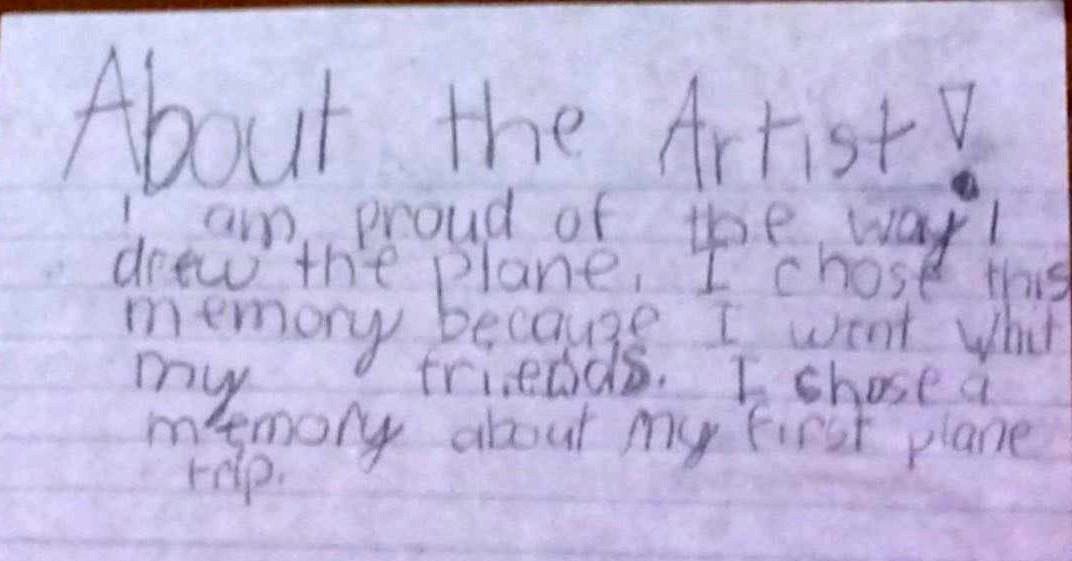 About the Artist!
I am proud of the way I
drew the plane. I chose this
memory because I went whit
my friends. I chose a
memory about my first plane
trip.